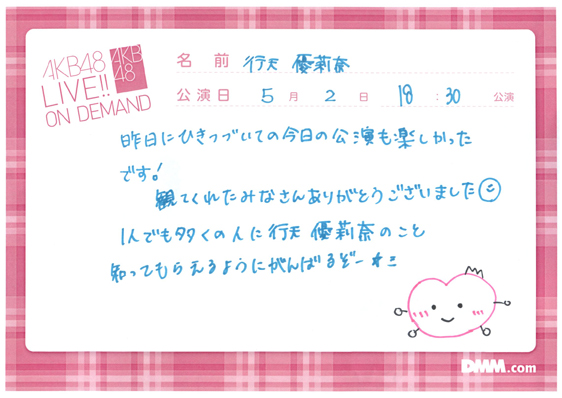 AKB48
LIVE!!
ON DEMAND
AKB
48
名前 行天 優莉奈
公演日 5月2日 18:30 公演
昨日にひきつづいての今日の公演も楽しかった
です!
観てくれたみなさんありがとうございました
1人でも多くの人に行天 優莉奈のこと
知ってもらえるようにがんばるぞー
DMM.com